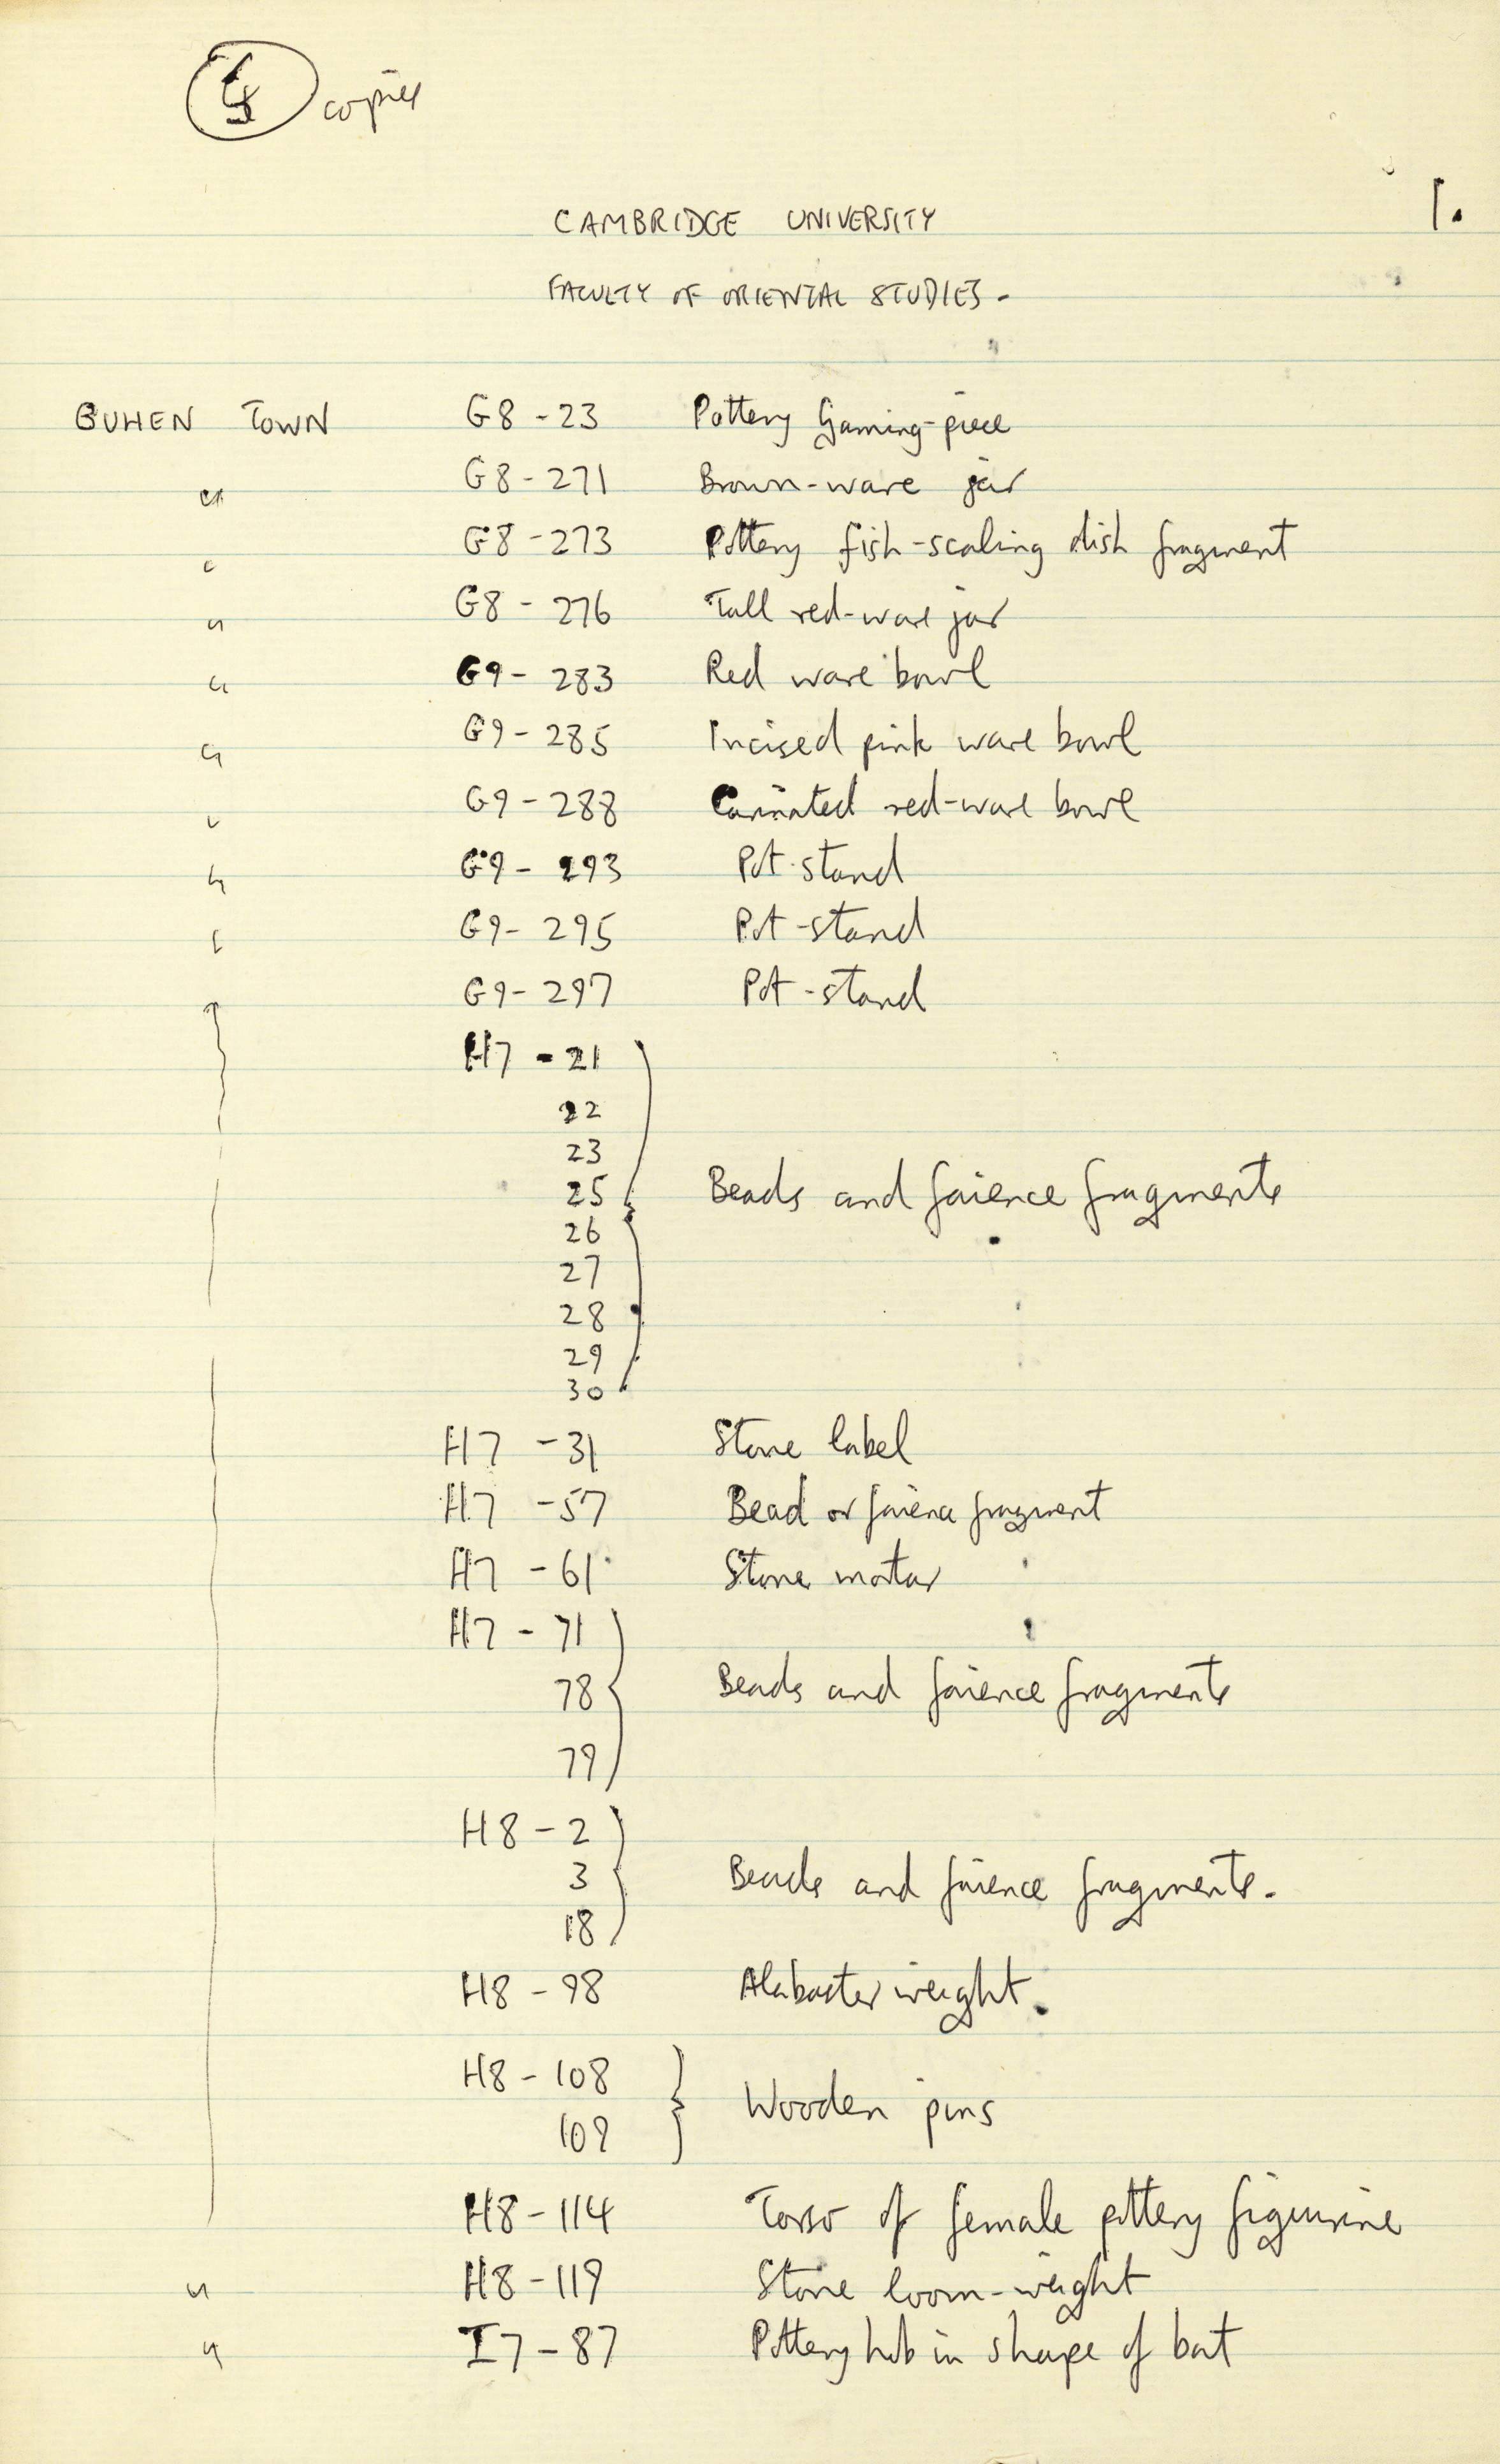 copies
1.
CAMBRIDGE UNIVERSITY
FACULTY OF ORIENTAL STUDIES -
BUHEN TOWN G8 - 23 Pottery Gaming-piece
" G8 - 271 Brown-ware jar
" G8 - 273 Pottery fish-scaling dish fragment
" G8 - 276 Tall red-ware jar
" G9 - 283 Red ware bowl
" G9 - 285 Incised pink ware bowl
" G9 - 288 Carinated red-ware bowl
" G9 - 293 Pot-stand
" G9 - 295 Pot-stand
" G9 - 297 Pot-stand
H7 - 21
22
23
25 Beads and faience fragments
26
27
28
29
30
H7 - 31 Stone label
H7 - 57 Bead or faience fragment
H7 - 61 Stone mortar
H7 - 71
78 Beads and faience fragments
79
H8 - 2
3 Beads and faience fragments.
18
H8 - 98 Alabaster weight.
H8 - 108
109 Wooden pins
H8 - 114 Torso of female pottery figurine
" H8 - 119 Stone loom-weight
" I7 - 87 Pottery in shape of